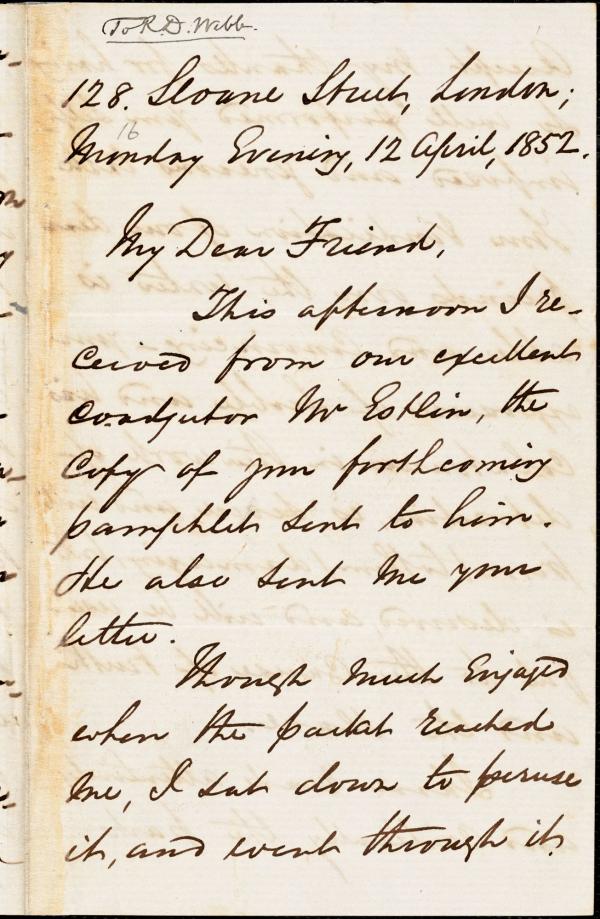 To R. D. Webb.
128. Sloane Street, London;
16
Monday Evening, 12 April, 1852.
My Dear Friend,
This afternoon I re-
ceived from our excellent
coadjutor Mr Estlin, the
copy of your forthcoming
pamphlet sent to him.
He also sent me your
letter.
Though much engaged
when the packet reached
me, I sat down to peruse
it, and went through it